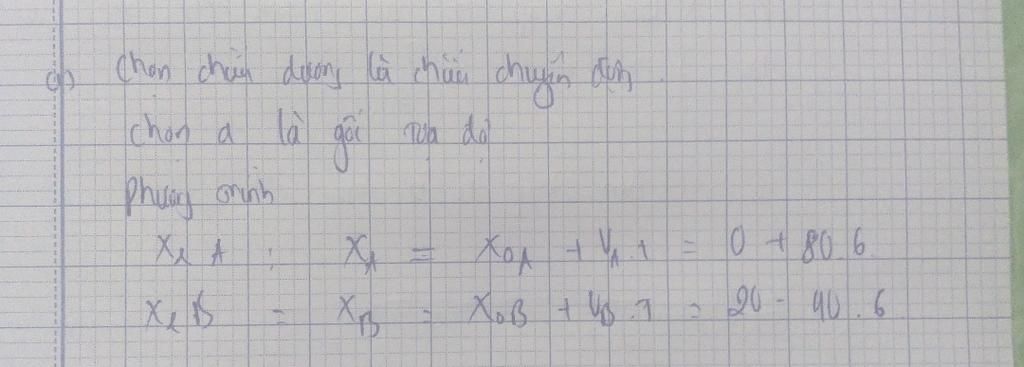 a) Chọn chiều dương là chiều chuyển động
chọn a là gốc tọa độ
Phương trình
Xe A : X_A = X_0A + V_A.t = 0 + 80.6
Xe B = X_B = X_0B + V_B.t = 20 - 40.6